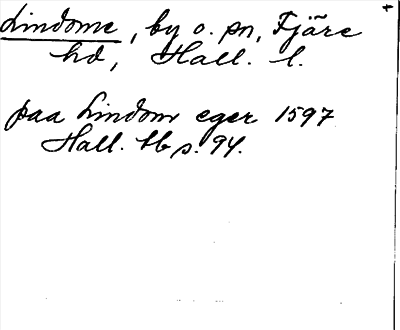 Lindome, by o. sn, Fjäre
hd, Hall. l.
paa Lindom eger 1597
Hall. tb s. 94.